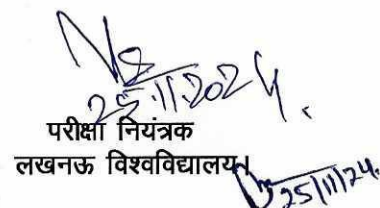 25.11.2024.
परीक्षा नियंत्रक
लखनऊ विश्वविद्यालय।
25/11/24.